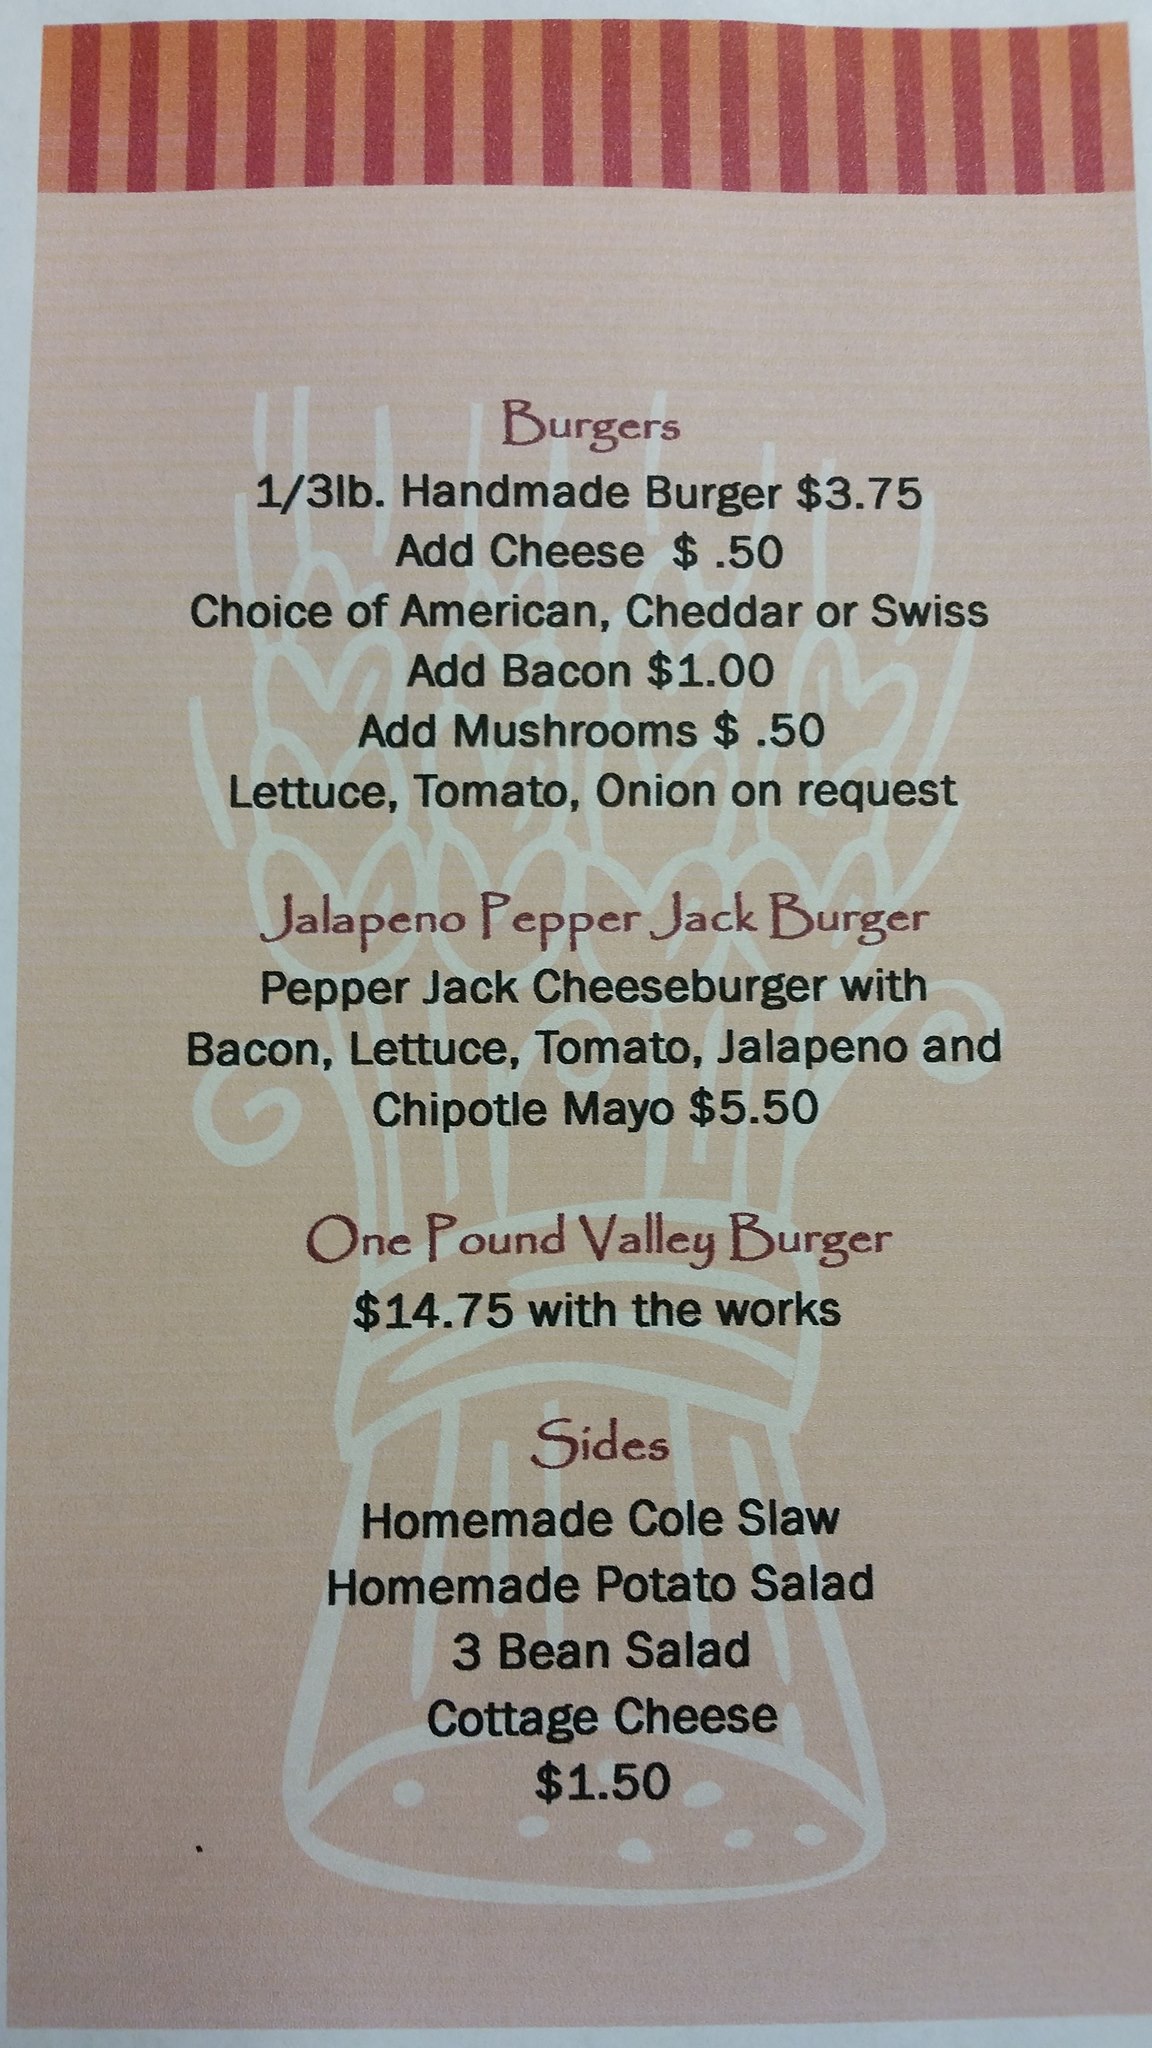 Burgers
1/3lb. Handmade Burger $3.75
Add Cheese  $ .50
Choice of American, Cheddar or Swiss
Add Bacon $1.00
Add Mushrooms $ .50
Lettuce, Tomato, Onion on request
Jalapeno Pepper Jack Burger
Pepper Jack Cheeseburger with
Bacon, Lettuce, Tomato, Jalapeno and
Chipotle Mayo $5.50
One Pound Valley Burger
$14.75 with the works
Sides
Homemade Cole Slaw
Homemade Potato Salad
3 Bean Salad
Cottage Cheese
$1.50